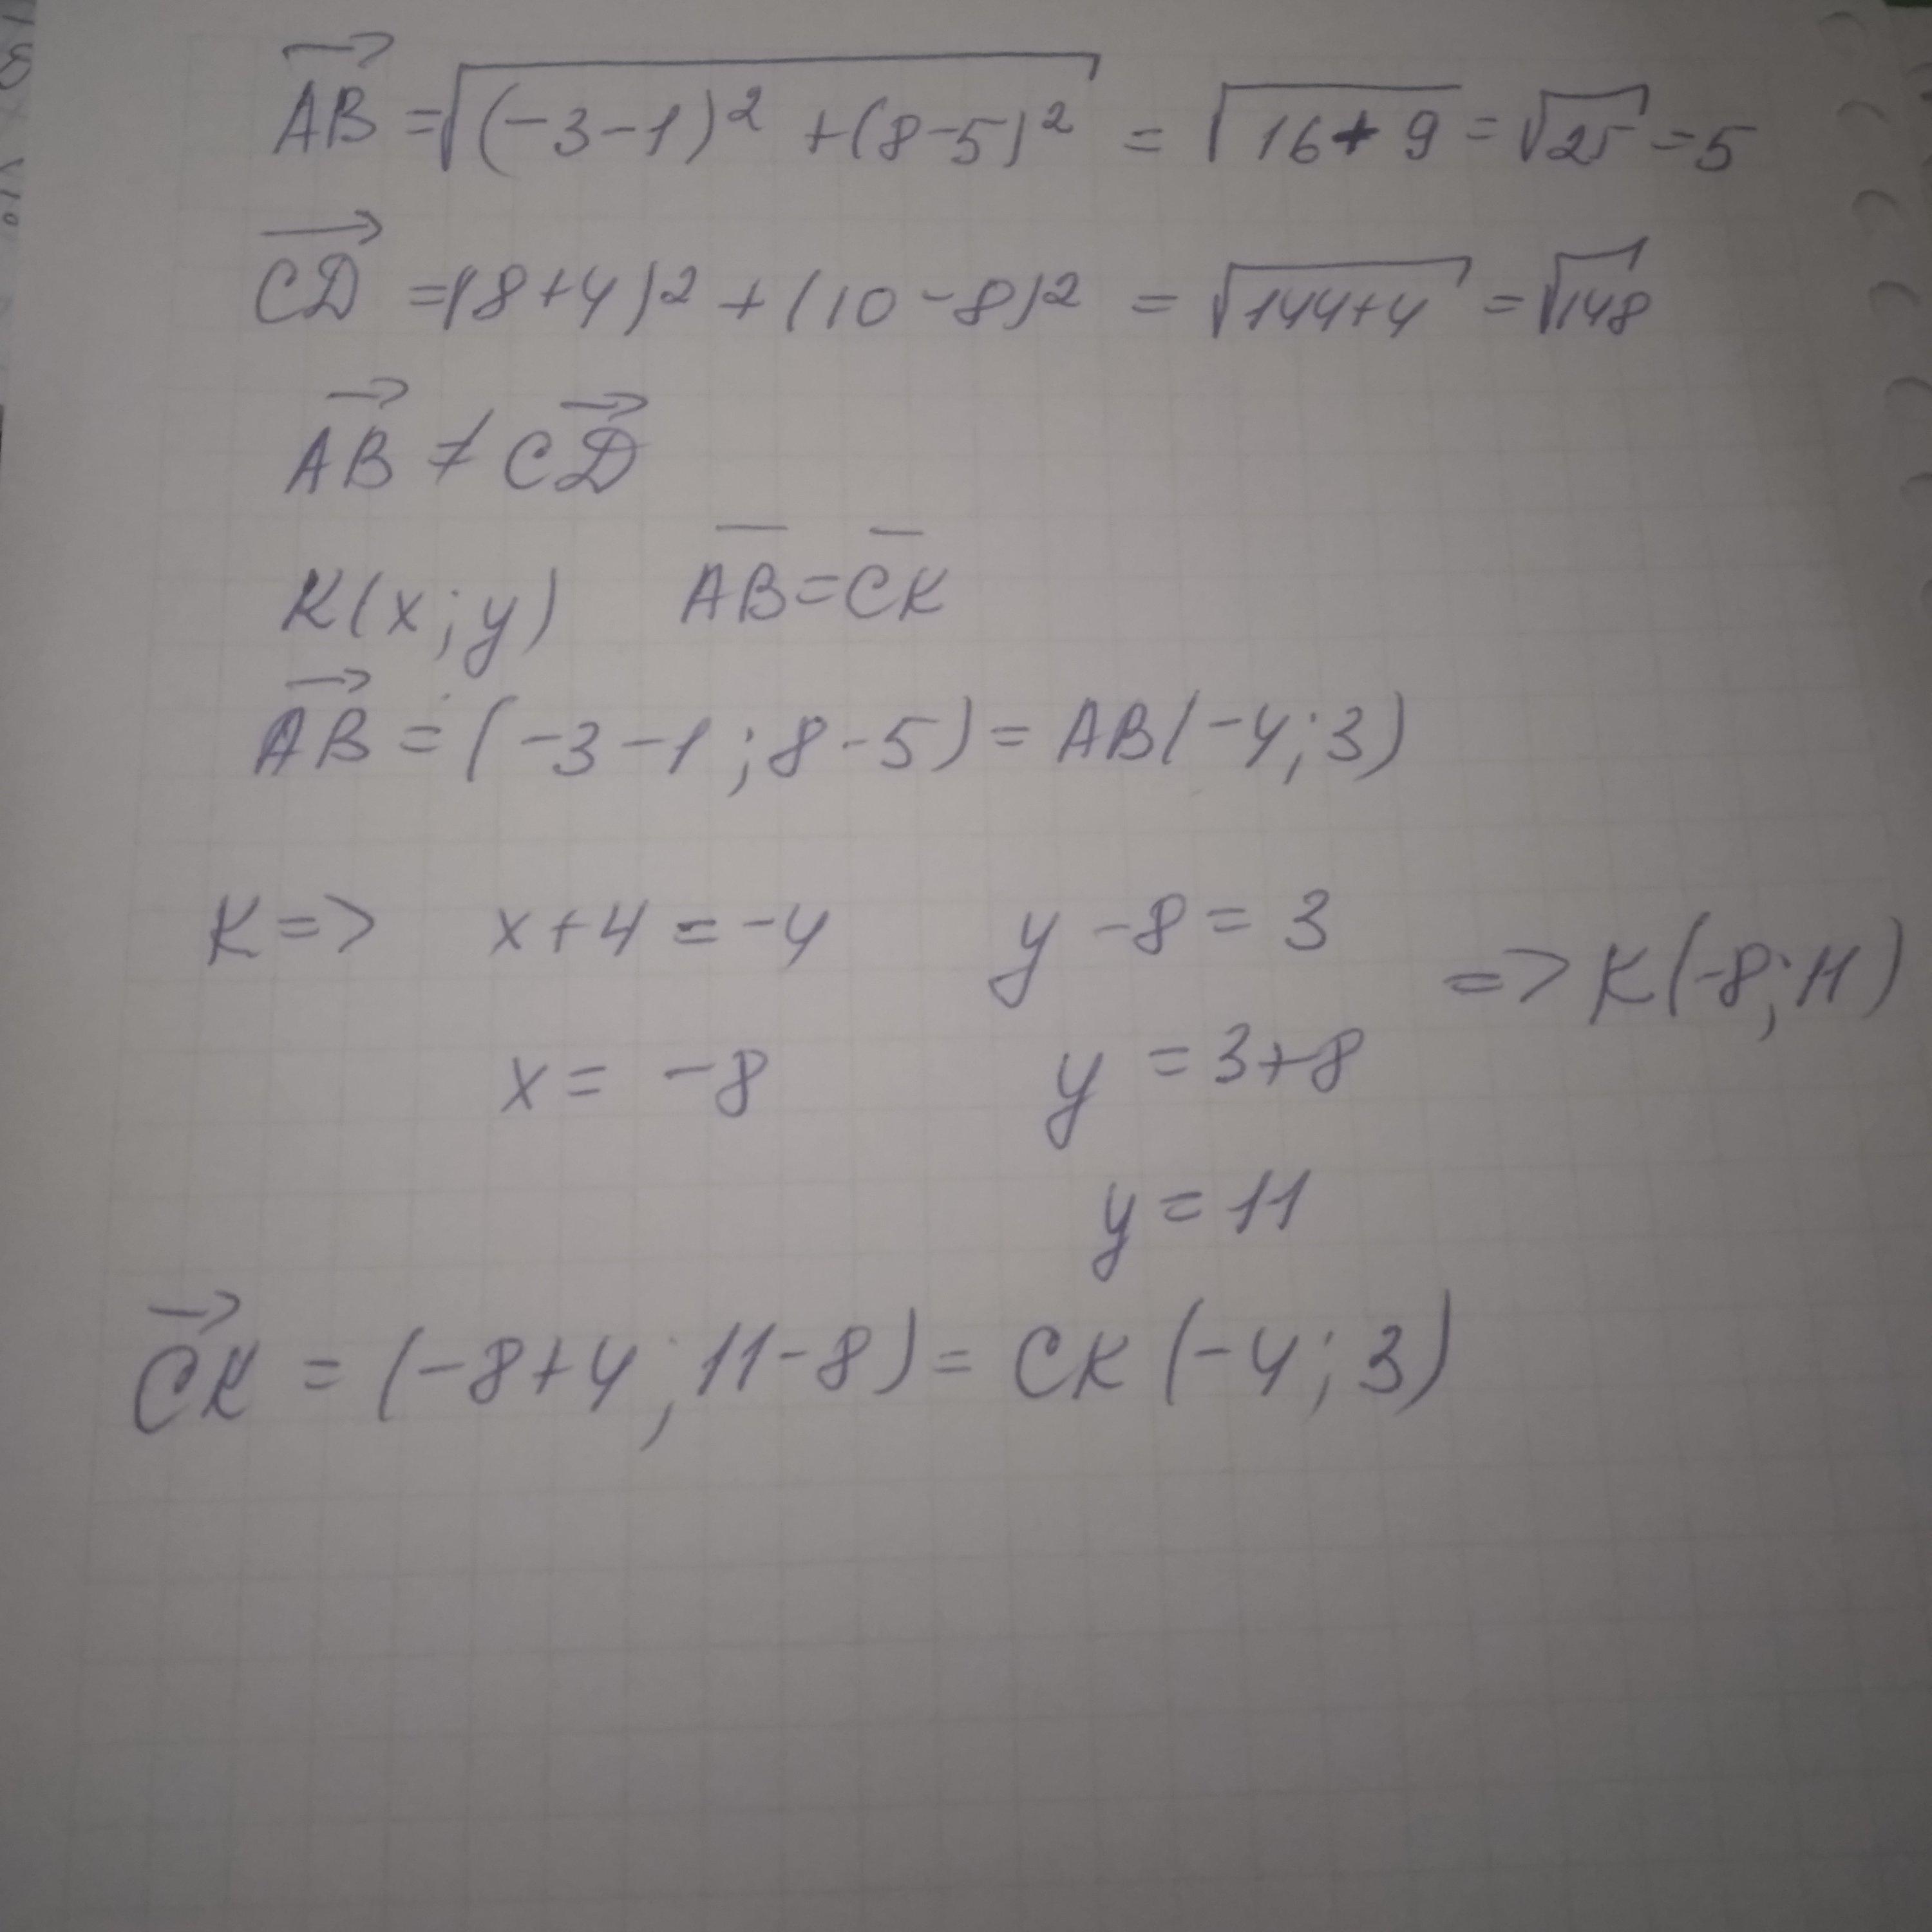 AB = √(-3-1)² + (8-5)² = √16+9 = √25 = 5
CD = (8+4)² + (10-8)² = √144+4 = √148
AB ≠ CD
K(x;y) AB = CK
AB = (-3-1; 8-5) = AB(-4; 3)
K => x+4 = -4 y-8 = 3 => K(-8; 11)
x = -8 y = 3+8
y = 11
CK = (-8+4; 11-8) = CK(-4; 3)